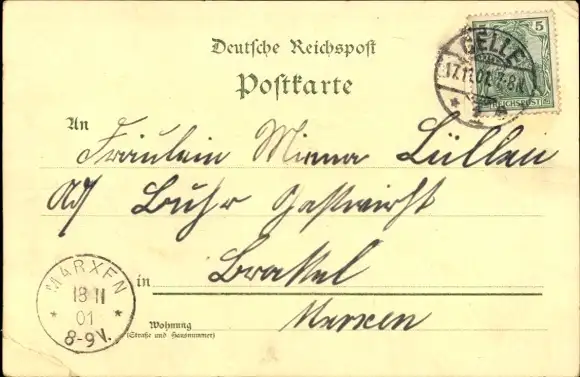 Deutsche Reichspost
Postkarte
5
CELLE
17.11.01. 7-8N.
REICHSPOST
An
Fräulein Minna Lüllau
Buhr Gastwirth
in Brakel
Marxen
MARXEN
18 11
01
8-9V.
Wohnung
(Straße und Hausnummer)